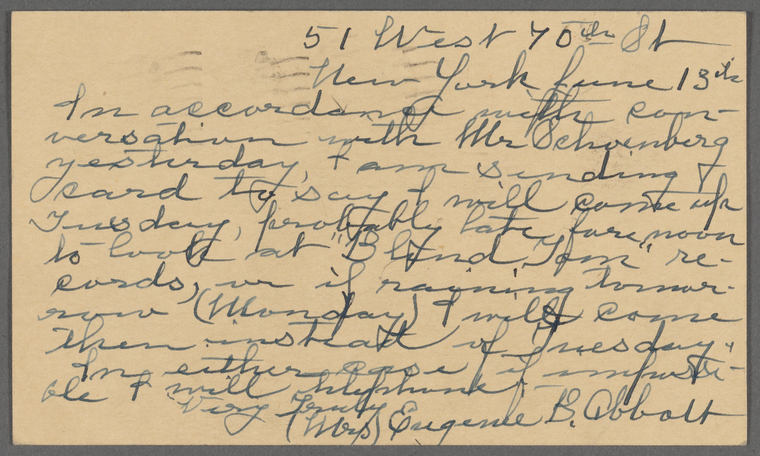 51 West 70th St
New York June 13th
In accordance with con-
versation with Mr Schoenberg
yesterday, I am sending
card to say I will come up
Tuesday, probably late forenoon
to look at "Blind Tom" re-
cords, or if raining tomor-
row (Monday) I will come
then instead of Tuesday.
In either case if impossi-
ble I will telephone.
Very Truly
(Mrs) Eugenie B. Abbott